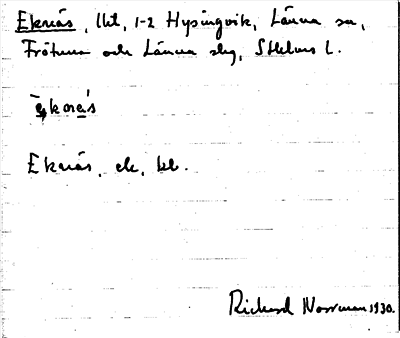 Eknäs, lht, 1-2 Hysingsvik, Länna sn,
Frötuna och Länna slg, Sthlms l.
Eknäs, ek,
Richard Norrman 1930.